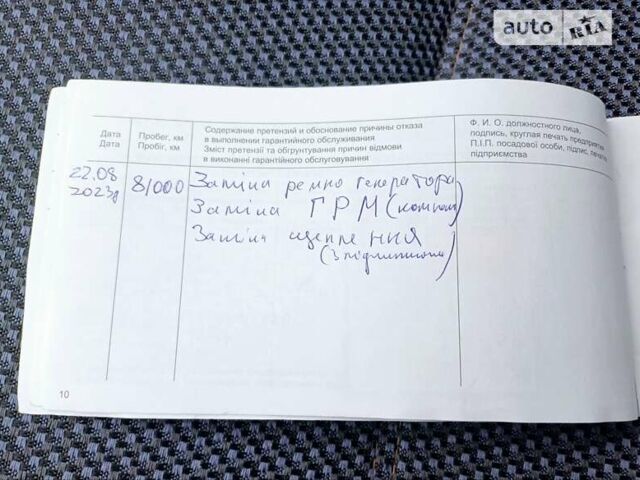 auto RIA
Дата
Дата
Пробег, км
Пробіг, км
Содержание претензий и обоснование причины отказа
в выполнении гарантийного обслуживания
Зміст претензії та обгрунтування причин відмови
в виконанні гарантійного обслуговування
Ф. И. О. должностного лица,
подпись, круглая печать предприятия
П.І.П. посадової особи, підпис, печатка
підприємства
22.08
2023р
81000
Заміна ремню генератора
Заміна ГРМ (комплект)
Заміна щеплення
(з підшипником)
10